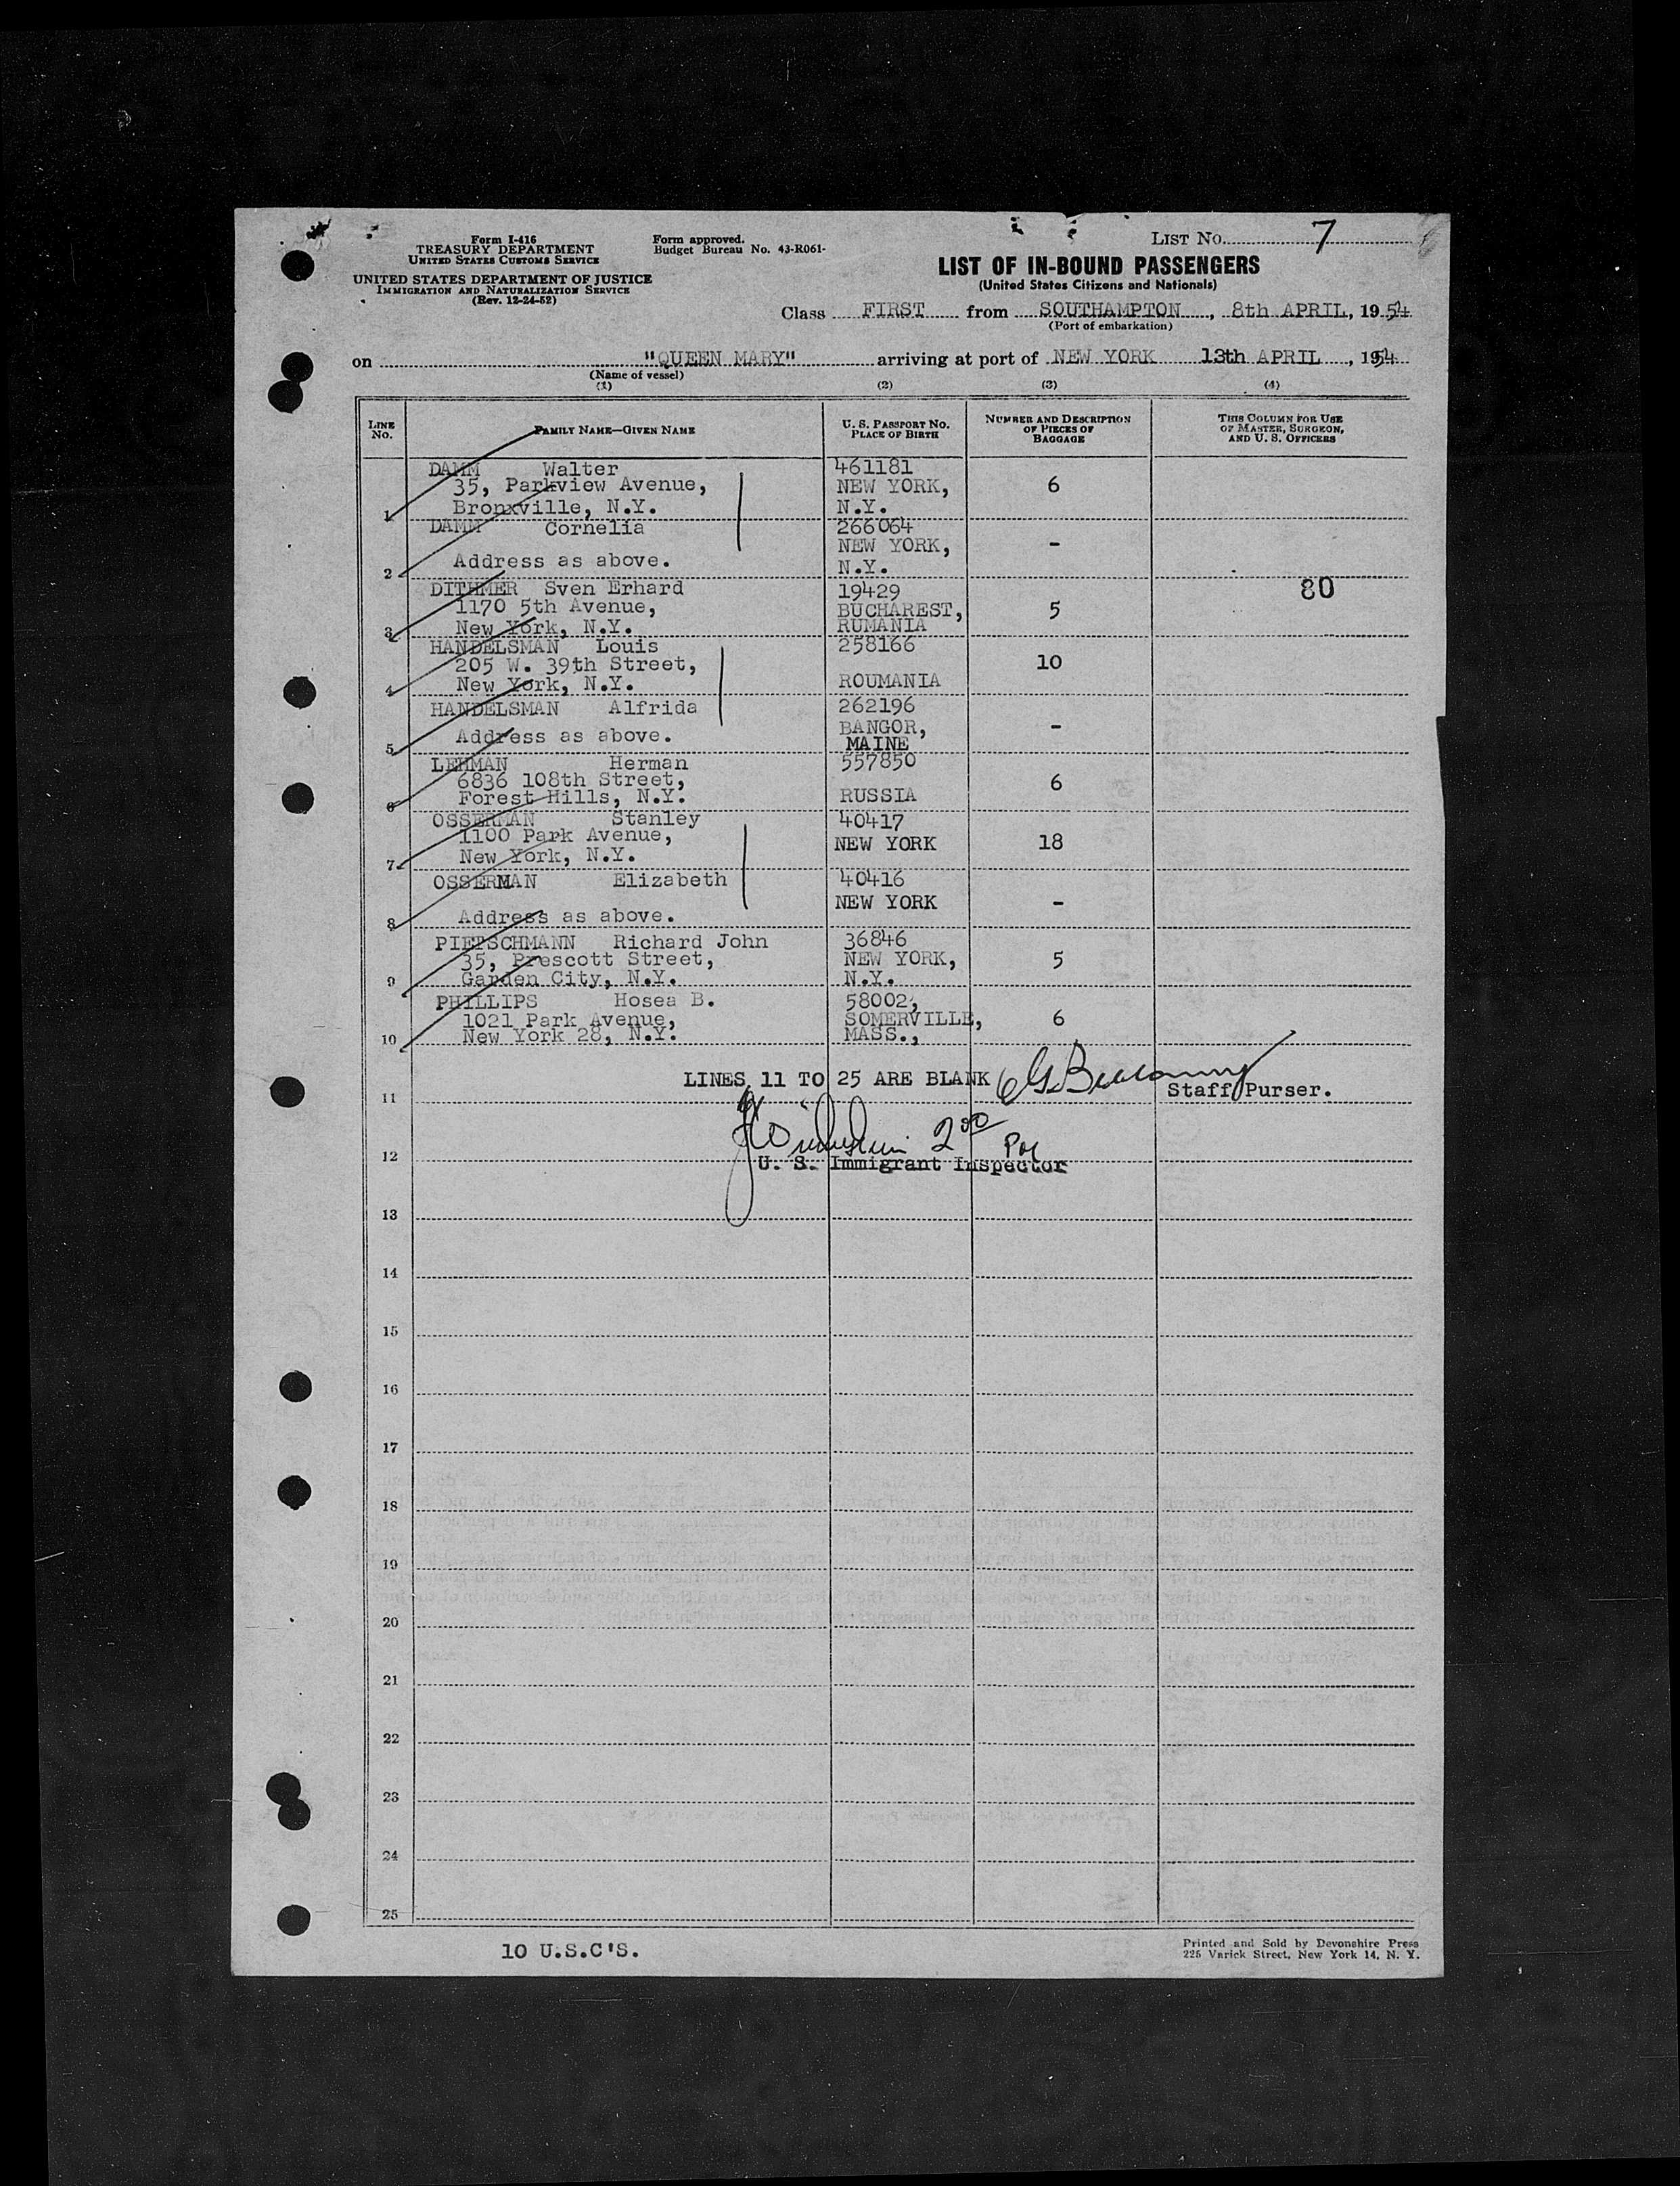 Form I-416
TREASURY DEPARTMENT
UNITED STATES CUSTOMS SERVICE
UNITED STATES DEPARTMENT OF JUSTICE
IMMIGRATION AND NATURALIZATION SERVICE
(Rev. 12-24-52)
Form approved.
Budget Bureau No. 43-R061-
LIST No. 7
LIST OF IN-BOUND PASSENGERS
(United States Citizens and Nationals)
Class FIRST from SOUTHAMPTON, 8th APRIL, 1954
(Port of embarkation)
on "QUEEN MARY" arriving at port of NEW YORK 13th APRIL, 1954
(Name of vessel)
(1) (2) (3) (4)
LINE No. FAMILY NAME—GIVEN NAME U. S. PASSPORT NO. PLACE OF BIRTH NUMBER AND DESCRIPTION OF PIECES OF BAGGAGE THIS COLUMN FOR USE OF MASTER, SURGEON, AND U. S. OFFICERS
DAMM Walter 461181
35, Parkview Avenue, NEW YORK, 6
1 Bronxville, N.Y. N.Y.
DAMM Cornelia 266064
NEW YORK, -
2 Address as above. N.Y.
DITHMER Sven Erhard 19429 80
1170 5th Avenue, BUCHAREST, 5
3 New York, N.Y. RUMANIA
HANDELSMAN Louis 258166
205 W. 39th Street, 10
4 New York, N.Y. ROUMANIA
HANDELSMAN Alfrida 262196
BANGOR, -
5 Address as above. MAINE
LEHMAN Herman 557850
6836 108th Street, 6
6 Forest Hills, N.Y. RUSSIA
OSSERMAN Stanley 40417
1100 Park Avenue, NEW YORK 18
7 New York, N.Y.
OSSERMAN Elizabeth 40416
NEW YORK -
8 Address as above.
PIETSCHMANN Richard John 36846
35, Prescott Street, NEW YORK, 5
9 Garden City, N.Y. N.Y.
PHILLIPS Hosea B. 58002,
1021 Park Avenue, SOMERVILLE, 6
10 New York 28, N.Y. MASS.,
LINES 11 TO 25 ARE BLANK
Staff Purser.
11
12 U. S. Immigrant Inspector
13
14
15
16
17
18
19
20
21
22
23
24
25
10 U.S.C'S.
Printed and Sold by Devonshire Press
225 Varick Street, New York 14, N. Y.